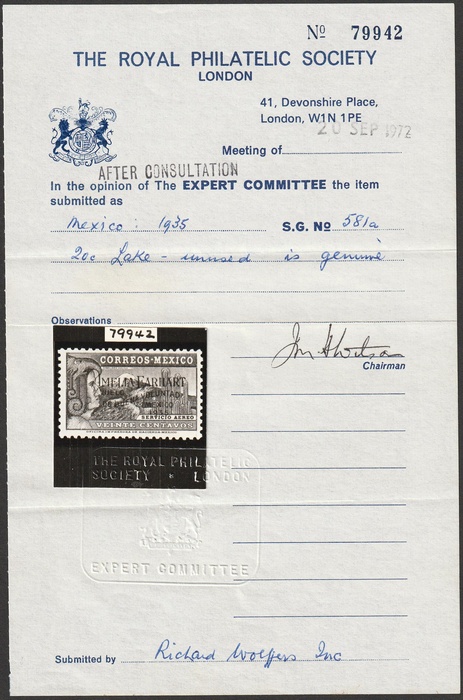 Nº 79942
THE ROYAL PHILATELIC SOCIETY
LONDON
41, Devonshire Place,
London, W1N 1PE
20 SEP 1972
Meeting of
AFTER CONSULTATION
In the opinion of The EXPERT COMMITTEE the item
submitted as
Mexico: 1935 S.G. Nº 581a
20c Lake - unused is genuine
Observations
Chairman
79942
CORREOS·MEXICO
AMELIA EARHART
VUELO
DE BUENA VOLUNTAD
MEXICO
1935
SERVICIO AEREO
VEINTE CENTAVOS
THE ROYAL PHILATELIC
SOCIETY * LONDON
EXPERT COMMITTEE
Submitted by Richard Wolffers Inc